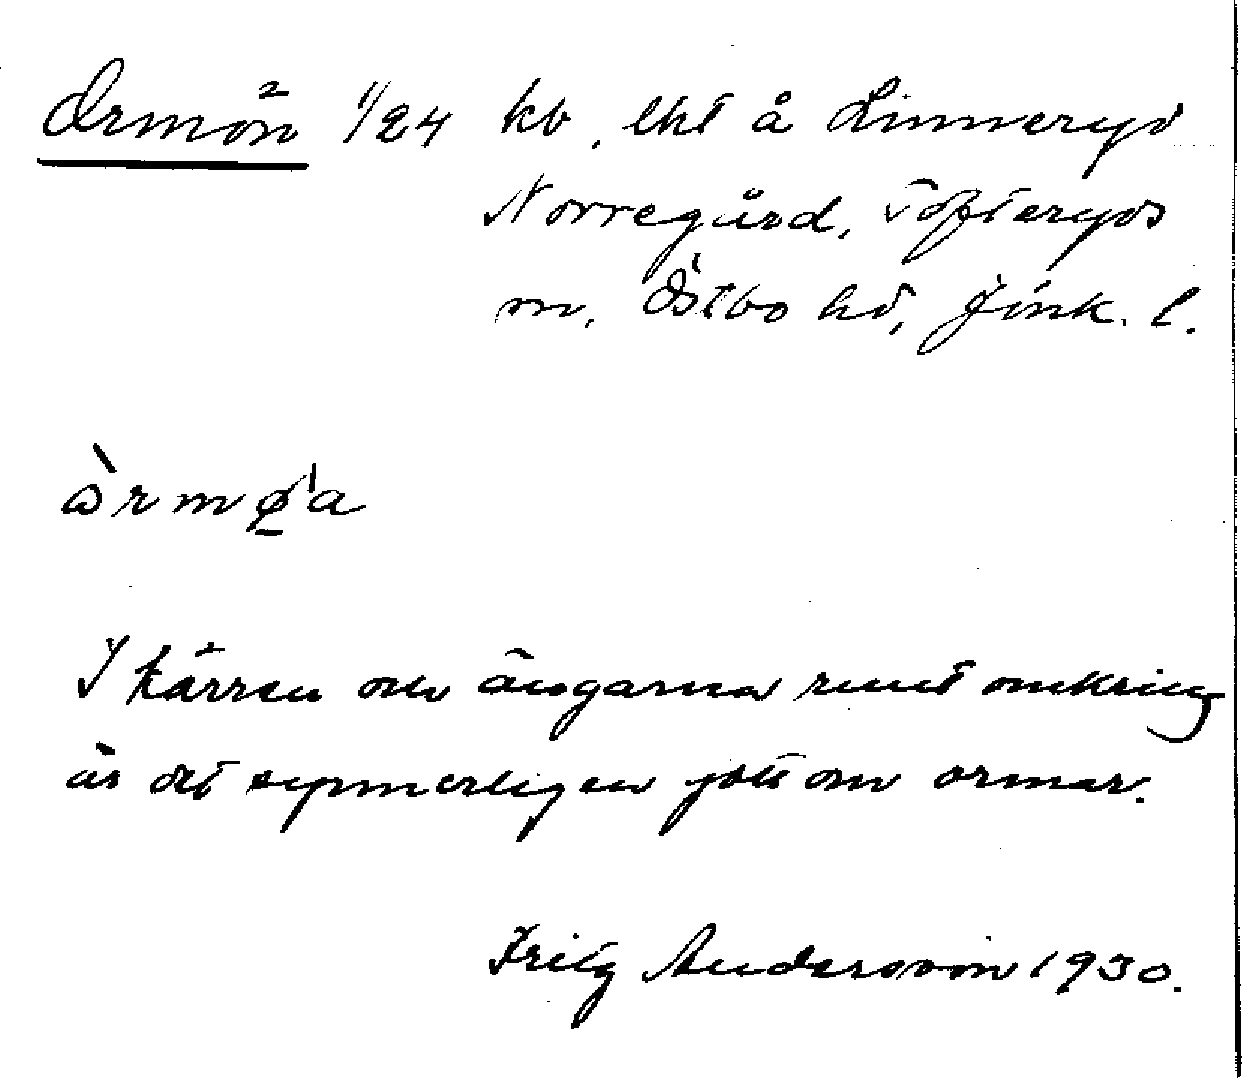 Ormön 1/24 kb, lht å Linneryd
Norregård, Tofteryds
sn, Östbo hd, Jönk. l.
òrmø̱'a
I kärren och ängarna runt omkring
är det synnerligen gott om ormar.
Fritz Andersson 1930.